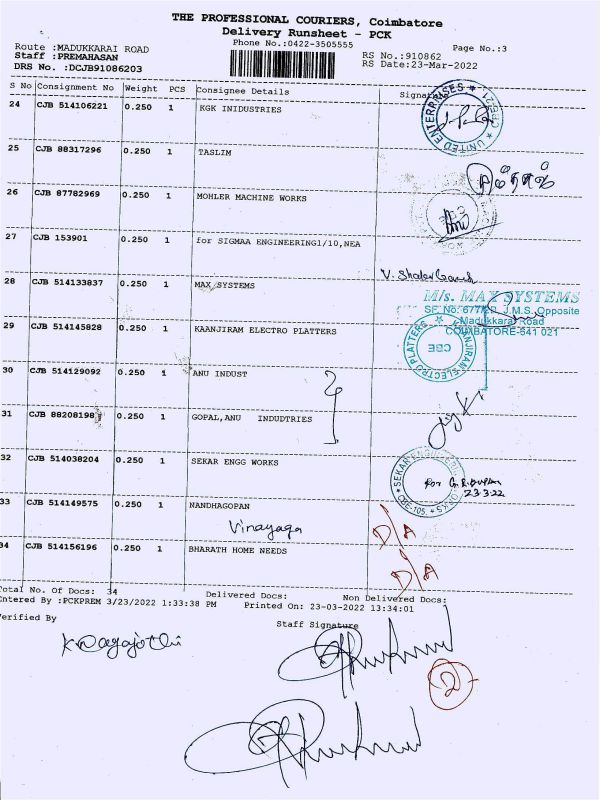 THE PROFESSIONAL COURIERS, Coimbatore
Delivery Runsheet - PCK
Phone No.:0422-3505555
Page No.:3
Route :MADUKKARAI ROAD
Staff :PREMAHASAN
DRS No. :DCJB91086203
RS No.:910862
RS Date:23-Mar-2022
S No Consignment No Weight PCS Consignee Details Signature
24 CJB 514106221 0.250 1 KGK INIDUSTRIES
UNITED ENTERPRISES
25 CJB 88317296 0.250 1 TASLIM
26 CJB 87782969 0.250 1 MOHLER MACHINE WORKS
27 CJB 153901 0.250 1 for SIGMAA ENGINEERING1/10,NEA
28 CJB 514133837 0.250 1 MAX SYSTEMS
M/s. MAX SYSTEMS
SF.No: 677/2P, J.M.S. Opposite
Madukkarai Road
COIMBATORE-641 021
29 CJB 514145828 0.250 1 KAANJIRAM ELECTRO PLATTERS
KAANJIRAN ELECTRO PLATTERS
CBE
30 CJB 514129092 0.250 1 ANU INDUST
31 CJB 88208198 0.250 1 GOPAL,ANU INDUDTRIES
32 CJB 514038204 0.250 1 SEKAR ENGG WORKS
23.3.22
33 CJB 514149575 0.250 1 NANDHAGOPAN
Vinayaga
D/A
34 CJB 514156196 0.250 1 BHARATH HOME NEEDS
D/A
Total No. Of Docs: 34 Delivered Docs: Non Delivered Docs:
Entered By :PCKPREM 3/23/2022 1:33:38 PM Printed On: 23-03-2022 13:34:01
Verified By
Staff Signature
2